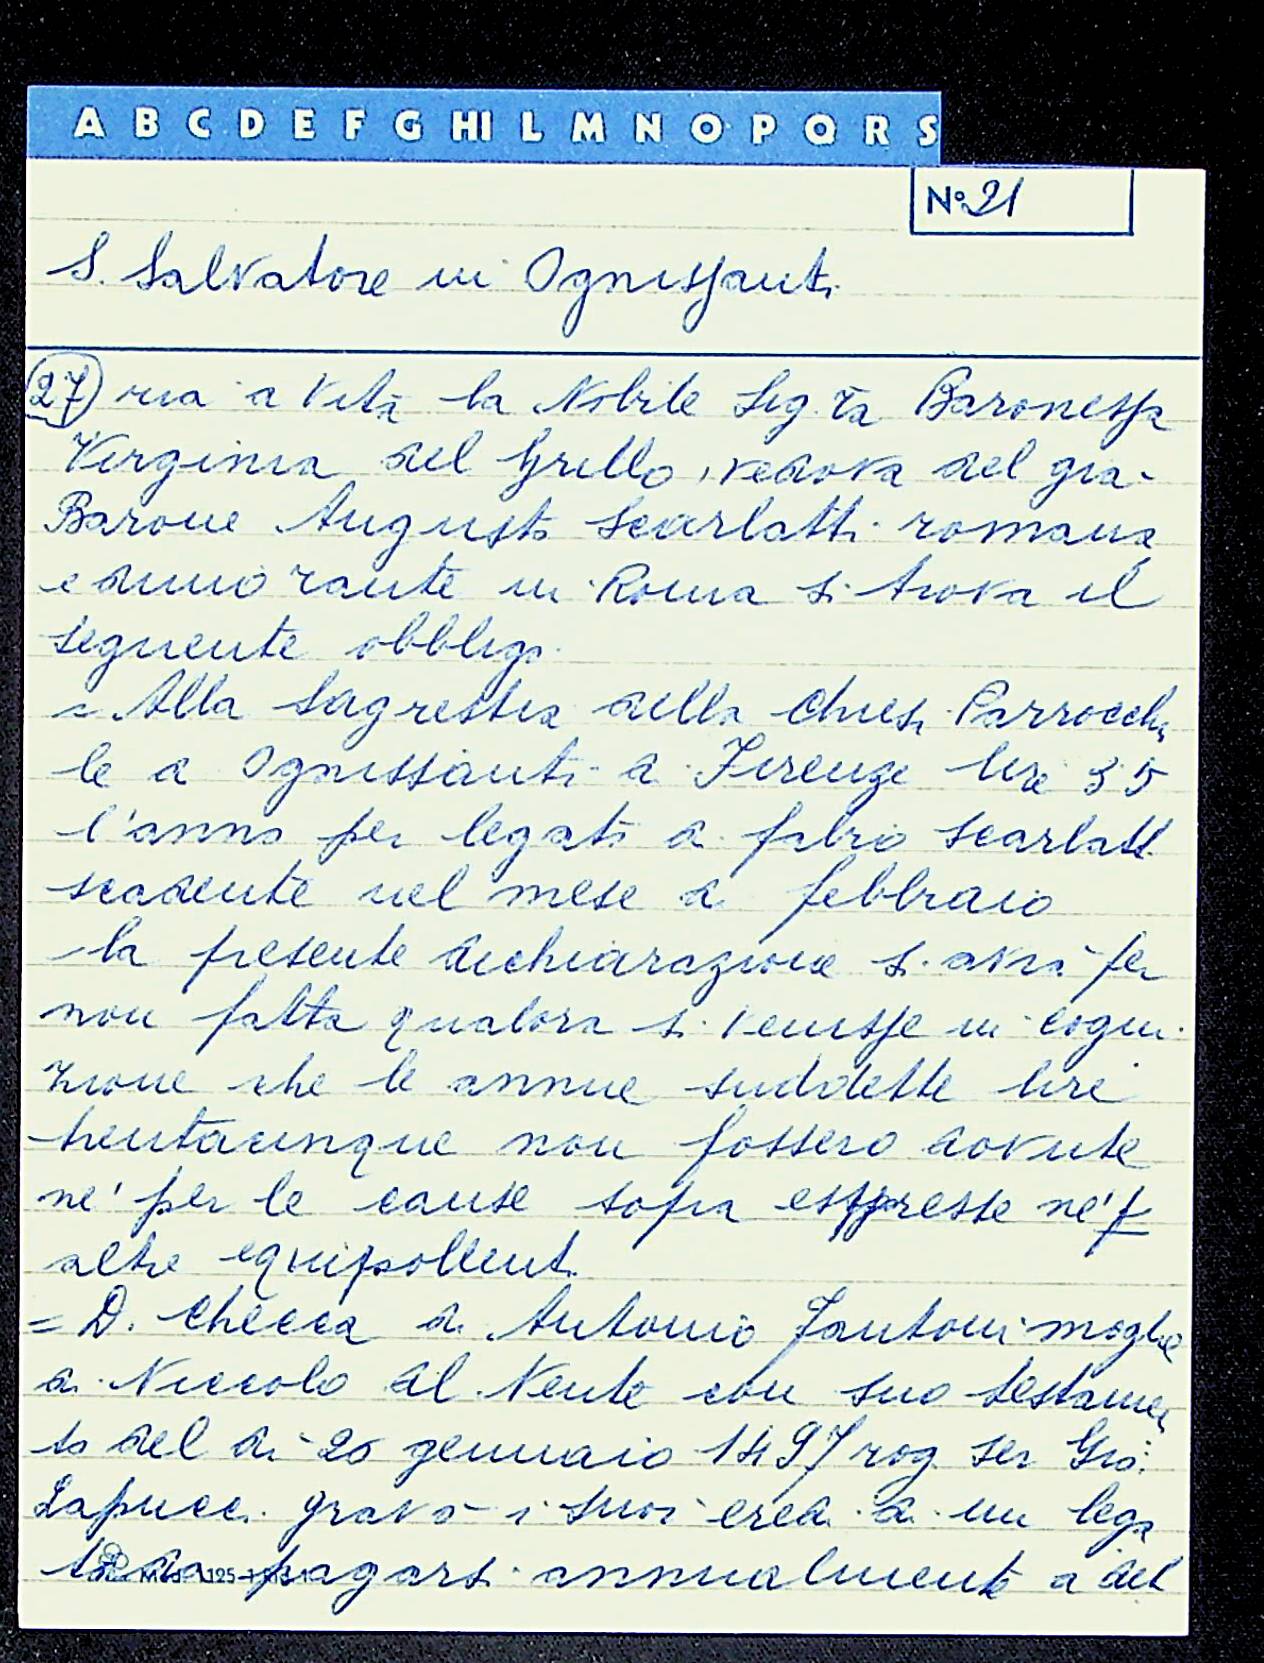 A B C D E F G HI L M N O P Q R S
N° 21
S. Salvatore in Ognissanti
27) ria a vita la Nobile Sig.ra Baronessa
Virginia del Grillo, vedova del gia-
Barone Augusto Scarlatti romana
e dimorante in Roma si trova il
seguente obbligo.
= Alla Sagrestia della Chiesa Parrocchia
le d Ognissanti di Firenze lire 35
l'anno per legato di fabio Scarlatti
scadente nel mese di febbraio
la presente dichiarazione si avrà per
non fatta qualora si venisse in cogni
zione che le annue suddette lire
trentacinque non fossero dovute
ne' per le cause sopra espresse ne' p
altre equipollenti.
= D. Checca di Antonio Fantoni moglie
di Niccolo del Nente con suo testamen
to del di 20 gennaio 1497 rog. ser Gio:
Lapucci. gravò i suoi eredi di un lega
to da pagarsi annualmente a del